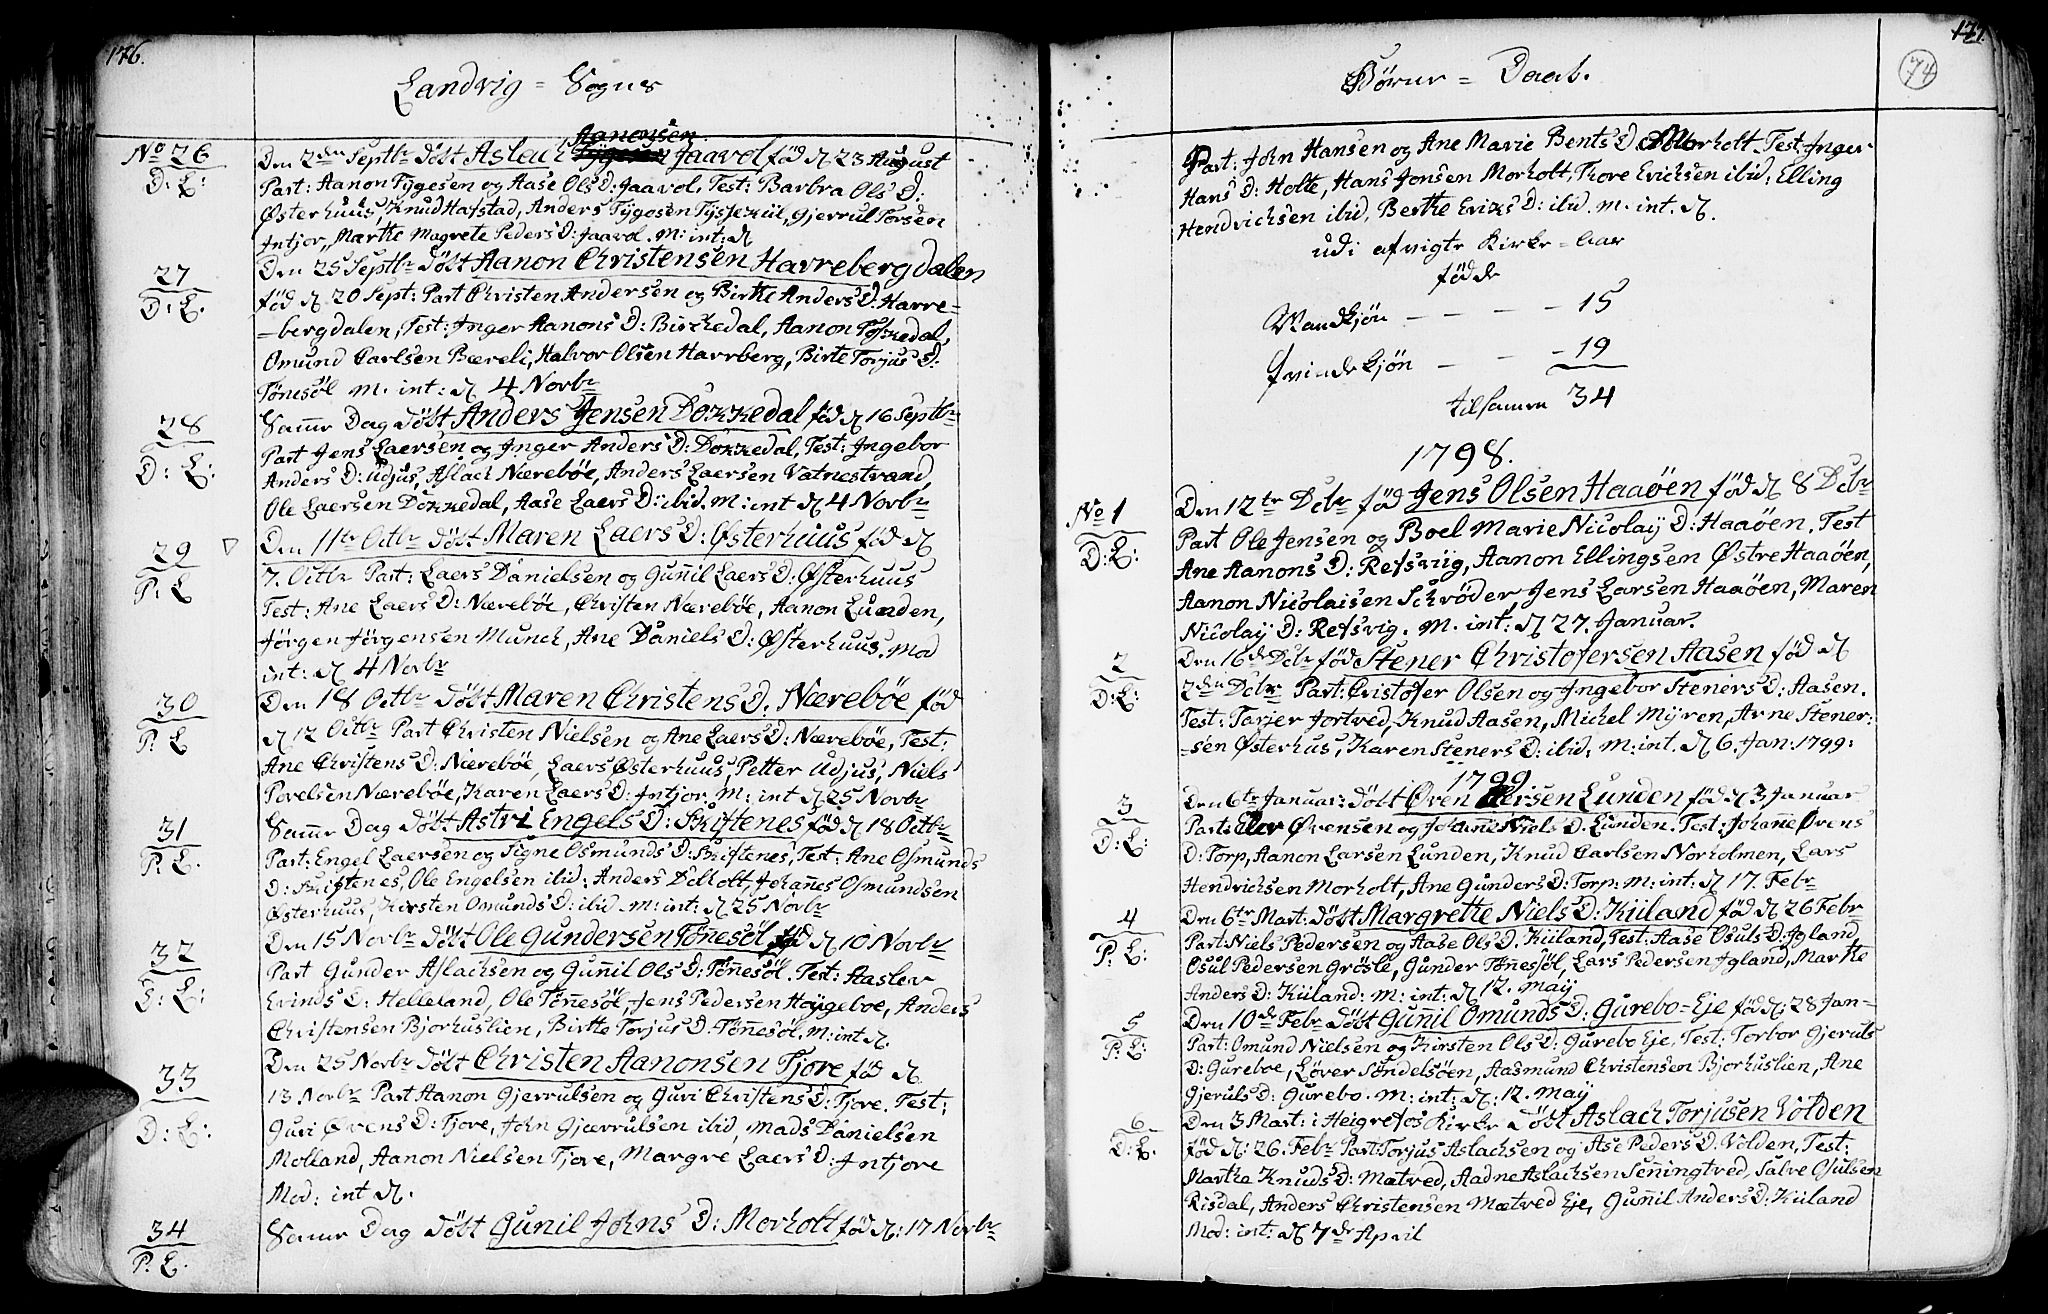 176.
Landvig = Sogns
No 26
D: E:
Aanonsen
Den 2den Septbr döbt Aslach Tygesen Jaavol fød d 23 August
Part: Aanon Tygesen og Aase Ols D: Jaavol, Test: Barbra Ols D:
Østerhuus, Knud Hafstad, Anders Tygosen Tysseküil, Gjerrul Torsen
Intjor, Marthe Magrete Peders D: Jaavol. M: int: d
27
D: E.
Den 25 Septbr döbt Aanon Christensen Harrebergdalen
fød d 20 Sept: Part Christen Andersen og Birthe Anders D: Harre=
=bergdalen, Test: Inger Aanons D: Birchedal, Aanon Toskedal,
Omund Carlsen Bæreli, Halvor Olsen Harrberg, Birte Torjus D:
Tönesöl M. int: d 4 Novbr
28
D: E:
Samme Dag döbt Anders Jensen Dokkedal fød d 16 Septbr
Part Jens Laersen og Inger Anders D: Dokkedal, Test: Ingebor
Anders D: Udjus, Aslach Nærebøe, Anders Laersen Vatnestrand,
Ole Laersen Dokkedal, Aase Laers D: ibid. M: int d 4 Novbr
29
P: E
Den 11te Octbr döbt Maren Laers D: Østerhuus fød d
7. Octbr Part: Laers Danielsen og Gunnil Laers D: Østerhuus
Test: Ane Laers D: Nærebøe, Christen Nærebøe, Aanon Lunden,
Jörgen Jörgensen Munch, Ane Daniels D: Østerhuus. Mod
int: d 4 Novbr
30
P: E
Den 18 Octbr döbt Maren Christens D. Nærebøe fød
d 12 Octbr Part Christen Nielsen og Ane Laers D: Nærebøe, Test:
Ane Christens D: Nærebøe, Laers Østerhuus, Petter Udjus, Niels
Povelsen Nærebøe, Karen Laers D: Intjor. M: int d 25 Novbr
31
P: E.
Samme Dag döbt Astri Engels D: Skiftenes fød d 18 Octbr
Part: Engel Laersen og Signe Osmunds D: Skiftenes, Test: Ane Osmunds
D: Skiftenes, Ole Engelsen ibid: Anders Dolholt, Johannes Osmundsen
Østerhuus, Kirsten Omunds D: ibid. M: int: d 25 Novbr
32
D: E:
Den 15 Novbr döbt Ole Gundersen Tönesöl fød d 10 Novbr
Part Gunder Aslachsen og Gunnil Ols D: Tönnesöl. Test: Aaslev
Evinds D: Helleland, Ole Tönnesöl, Jens Pedersen Høygeboe, Anders
Christensen Bjorhuslien, Birtte Torjus D: Tönnesöl. M: int d.
33
D: E:
Den 25 Novbr döbt Christen Aanonsen Tjore, fød d
13 Novbr Part Aanon Gjerrulsen og Guri Christens D: Tjore. Test:
Guri Ørens D: Tjore, John Gjærrulsen ibid, Mads Danielsen
Molland, Aanon Nielsen Tjore, Margre Laers D: Intjore
Mod: int d.
34
P. E.
Samme Dag döbt Gunil Johns D: Morholt fød d: 17 Novbr
177.
74
Børne = Daab.
Part: John Hansen og Ane Marie Bents D Morholt. Test: Inger
Hans D: Holte, Hans Jonsen Morholt, Thore Erichsen ibid: Elling
Hendrichsen ibid, Berthe Eriks D: ibid. M. int. d.
udi afvigte Kirke=Aar
fødde
Mandkjön - - - - 15
Qvindekjön - - - 19
tilsamen 34
1798.
No 1
D: E:
Den 12te Dcbr fød Jens Olsen Haaöen fød d 8 Dcbr
Part Ole Jensen og Boel Marie Nicolay D: Haaöen. Test
Ane Aanons D: Refsviig, Aanon Ellingsen Østre Haaöen,
Aanon Nicolaisen Schröder, Jens Larsen Haaöen, Maren
Nicolay D: Refsvig. M. int: d 27. Januar.
2
D: E:
Den 16de Dcbr fød Stener Christofersen Aasen fød d
2den Dcbr Part: Cristofer Olsen og Ingebor Steners D: Aasen.
Test: Tarjer Jortved, Knud Aasen, Michel Myren, Arne Stener=
=sen Østerhus, Karen Steners D: ibid, M: int. d 6. Jan: 1799:
1799
3
D: E:
Den 6te Januar: döbt Øven Elersen Lunden fød d 3 Januar
Part: Elev Øvensen og Johanne Niels D. Lunden. Test: Johanne Øvens
D: Torp, Aanon Larsen Lunden, Knud Carlsen Norholmen, Lars
Hendrichsen Morholt, Ane Gunders D: Torp: M: int: d 17. Febr
4
P: E:
Den 6te Mart: döbt Margrethe Niels D: Kiiland fød d 26 Febr
Part: Niels Pedersen og Aase Ols D. Kiiland, Test: Aase Osuls D: Igland,
Osul Pedersen Grösle, Gunder Tönnesöl, Lars Pedersen Igland, Marthe
Anders D: Kiiland: M: int: d 12. May
5
P: E:
Den 10de Febr döbt Gunil Omunds D: Gurebo=Eje fød d: 28 Jan=
Part: Omund Nielsen og Kirsten Ols D: Gurebo Eje, Test: Torbor Gjeruls
D: Gureboe, Löver Söndelsöen, Aasmund Christensen Bjorhuslien, Ane
Gjeruls D: Gurebo. M: int: d: 12. May
6
D: E.
Den 3 Mart: i Heigrefos Kirke döbt Aslach Torjusen Volden
fød d: 26. Febr Part: Torjus Aslachsen og Ase Peders D: Volden, Test:
Marthe Knuds D: Mætved, Aadne Aslachsen Senningtved, Salve Osulsen
Risdal, Anders Christensen Mætved Eje, Gunnil Anders D: Kiiland
Mod: int: d 7de April